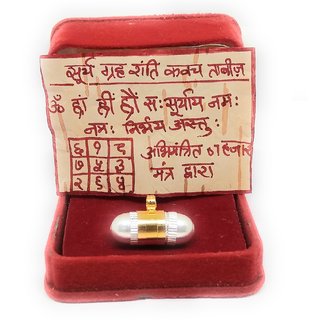 सूर्य ग्रह शांति कवच ताबीज़
ॐ ह्रां ह्रीं ह्रौं सः सूर्याय नमः
नत्रः निर्भय अस्तुः
६ १ ८
७ ५ ३
२ ६ ४
अभिमंत्रित ७१ हजार
मंत्र द्वारा